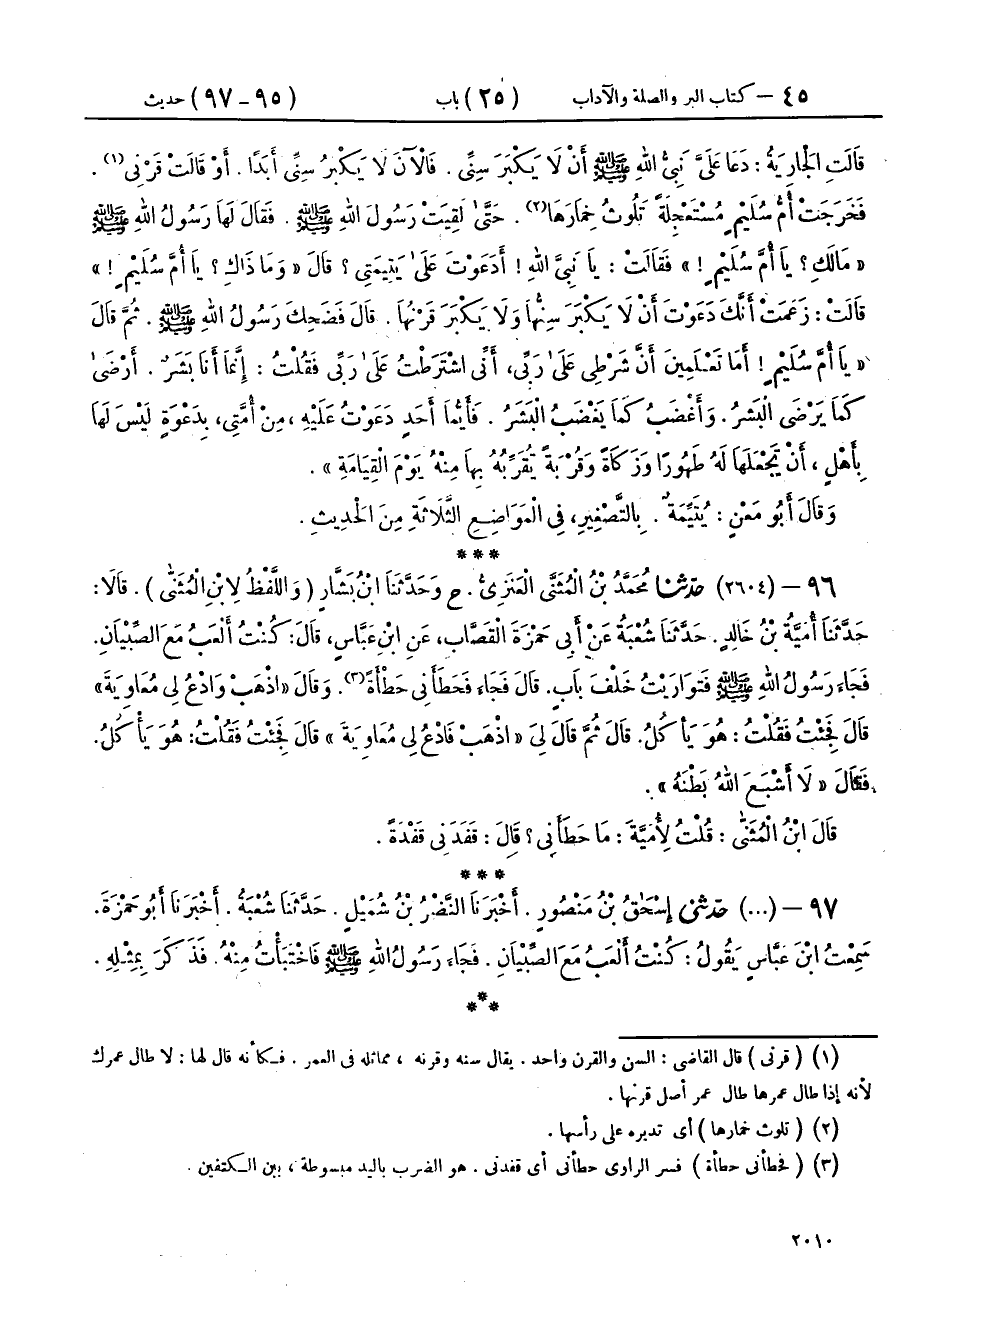 ٤٥ – كتاب البر والصلة والآداب (٢٥) باب (٩٥ – ٩٧) حديث
قَالَتِ الْجَارِيَةُ : دَعَا عَلَيَّ نَبِيُّ اللهِ ﷺ أَنْ لَا يَكْبَرَ سِنِّي . فَالْآنَ لَا يَكْبَرُ سِنِّي أَبَدًا . أَوْ قَالَتْ قَرْنِي(١) .
فَخَرَجَتْ أُمُّ سُلَيْمٍ مُسْتَعْجِلَةً تَلُوثُ خِمَارَهَا(٢) . حَتَّىٰ لَقِيَتْ رَسُولَ اللهِ ﷺ . فَقَالَ لَهَا رَسُولُ اللهِ ﷺ
« مَالَكِ ؟ يَا أُمَّ سُلَيْمٍ ! » فَقَالَتْ : يَا نَبِيَّ اللهِ ! أَدَعَوْتَ عَلَىٰ يَتِيمَتِي ؟ قَالَ « وَمَا ذَاكِ ؟ يَا أُمَّ سُلَيْمٍ ! »
قَالَتْ : زَعَمَتْ أَنَّكَ دَعَوْتَ أَنْ لَا يَكْبَرَ سِنُّهَا وَلَا يَكْبَرَ قَرْنُهَا . قَالَ فَضَحِكَ رَسُولُ اللهِ ﷺ . ثُمَّ قَالَ
« يَا أُمَّ سُلَيْمٍ ! أَمَا تَعْلَمِينَ أَنَّ شَرْطِي عَلَىٰ رَبِّي، أَنِّي اشْتَرَطْتُ عَلَىٰ رَبِّي فَقُلْتُ : إِنَّمَا أَنَا بَشَرٌ . أَرْضَىٰ
كَمَا يَرْضَى الْبَشَرُ . وَأَغْضَبُ كَمَا يَغْضَبُ الْبَشَرُ . فَأَيُّمَا أَحَدٍ دَعَوْتُ عَلَيْهِ ، مِنْ أُمَّتِي، بِدَعْوَةٍ لَيْسَ لَهَا
بِأَهْلٍ ، أَنْ تَجْعَلَهَا لَهُ طَهُورًا وَزَكَاةً وَقُرْبَةً يُقَرِّبُهُ بِهَا مِنْهُ يَوْمَ الْقِيَامَةِ » .
وَقَالَ أَبُو مَعْنٍ : يُتَيِّمَةٌ . بِالتَّصْغِيرِ، فِي الْمَوَاضِعِ الثَّلَاثَةِ مِنَ الْحَدِيثِ .
***
٩٦ – (٢٦٠٤) حَدَّثَنَا مُحَمَّدُ بْنُ الْمُثَنَّى الْعَنَزِيُّ . ح وَحَدَّثَنَا ابْنُ بَشَّارٍ ( وَاللَّفْظُ لِابْنِ الْمُثَنَّىٰ ) . قَالَا :
حَدَّثَنَا أُمَيَّةُ بْنُ خَالِدٍ . حَدَّثَنَا شُعْبَةُ عَنْ أَبِي حَمْزَةَ الْقَصَّابِ، عَنِ ابْنِ عَبَّاسٍ، قَالَ : كُنْتُ أَلْعَبُ مَعَ الصِّبْيَانِ.
فَجَاءَ رَسُولُ اللهِ ﷺ فَتَوَارَيْتُ خَلْفَ بَابٍ. قَالَ فَجَاءَ فَحَطَأَنِي حَطْأَةً(٣). وَقَالَ « اذْهَبْ وَادْعُ لِي مُعَاوِيَةَ»
قَالَ فَجِئْتُ فَقُلْتُ : هُوَ يَأْكُلُ. قَالَ ثُمَّ قَالَ لِيَ « اذْهَبْ فَادْعُ لِي مُعَاوِيَةَ » قَالَ فَجِئْتُ فَقُلْتُ: هُوَ يَأْكُلُ.
فَقَالَ « لَا أَشْبَعَ اللهُ بَطْنَهُ » .
قَالَ ابْنُ الْمُثَنَّىٰ : قُلْتُ لِأُمَيَّةَ : مَا حَطَأَنِي ؟ قَالَ : قَفَدَنِي قَفْدَةً .
***
٩٧ – (...) حَدَّثَنِي إِسْحَاقُ بْنُ مَنْصُورٍ . أَخْبَرَنَا النَّضْرُ بْنُ شُمَيْلٍ . حَدَّثَنَا شُعْبَةُ . أَخْبَرَنَا أَبُو حَمْزَةَ.
سَمِعْتُ ابْنَ عَبَّاسٍ يَقُولُ : كُنْتُ أَلْعَبُ مَعَ الصِّبْيَانِ . فَجَاءَ رَسُولُ اللهِ ﷺ فَاخْتَبَأْتُ مِنْهُ . فَذَكَرَ بِمِثْلِهِ .
***
(١) ( قرنى ) قال القاضى : السن والقرن واحد . يقال سنه وقرنه ، مماثله فى العمر . فكأنه قال لها : لا طال عمرك
لأنه إذا طال عمرها طال عمر أصل قرنها .
(٢) ( تلوث خمارها ) أى تديره على رأسها .
(٣) ( فحطأنى حطأة ) فسر الراوى حطأنى أى قفدنى . هو الضرب باليد مبسوطة ، بين الكتفين .
٢٠١٠